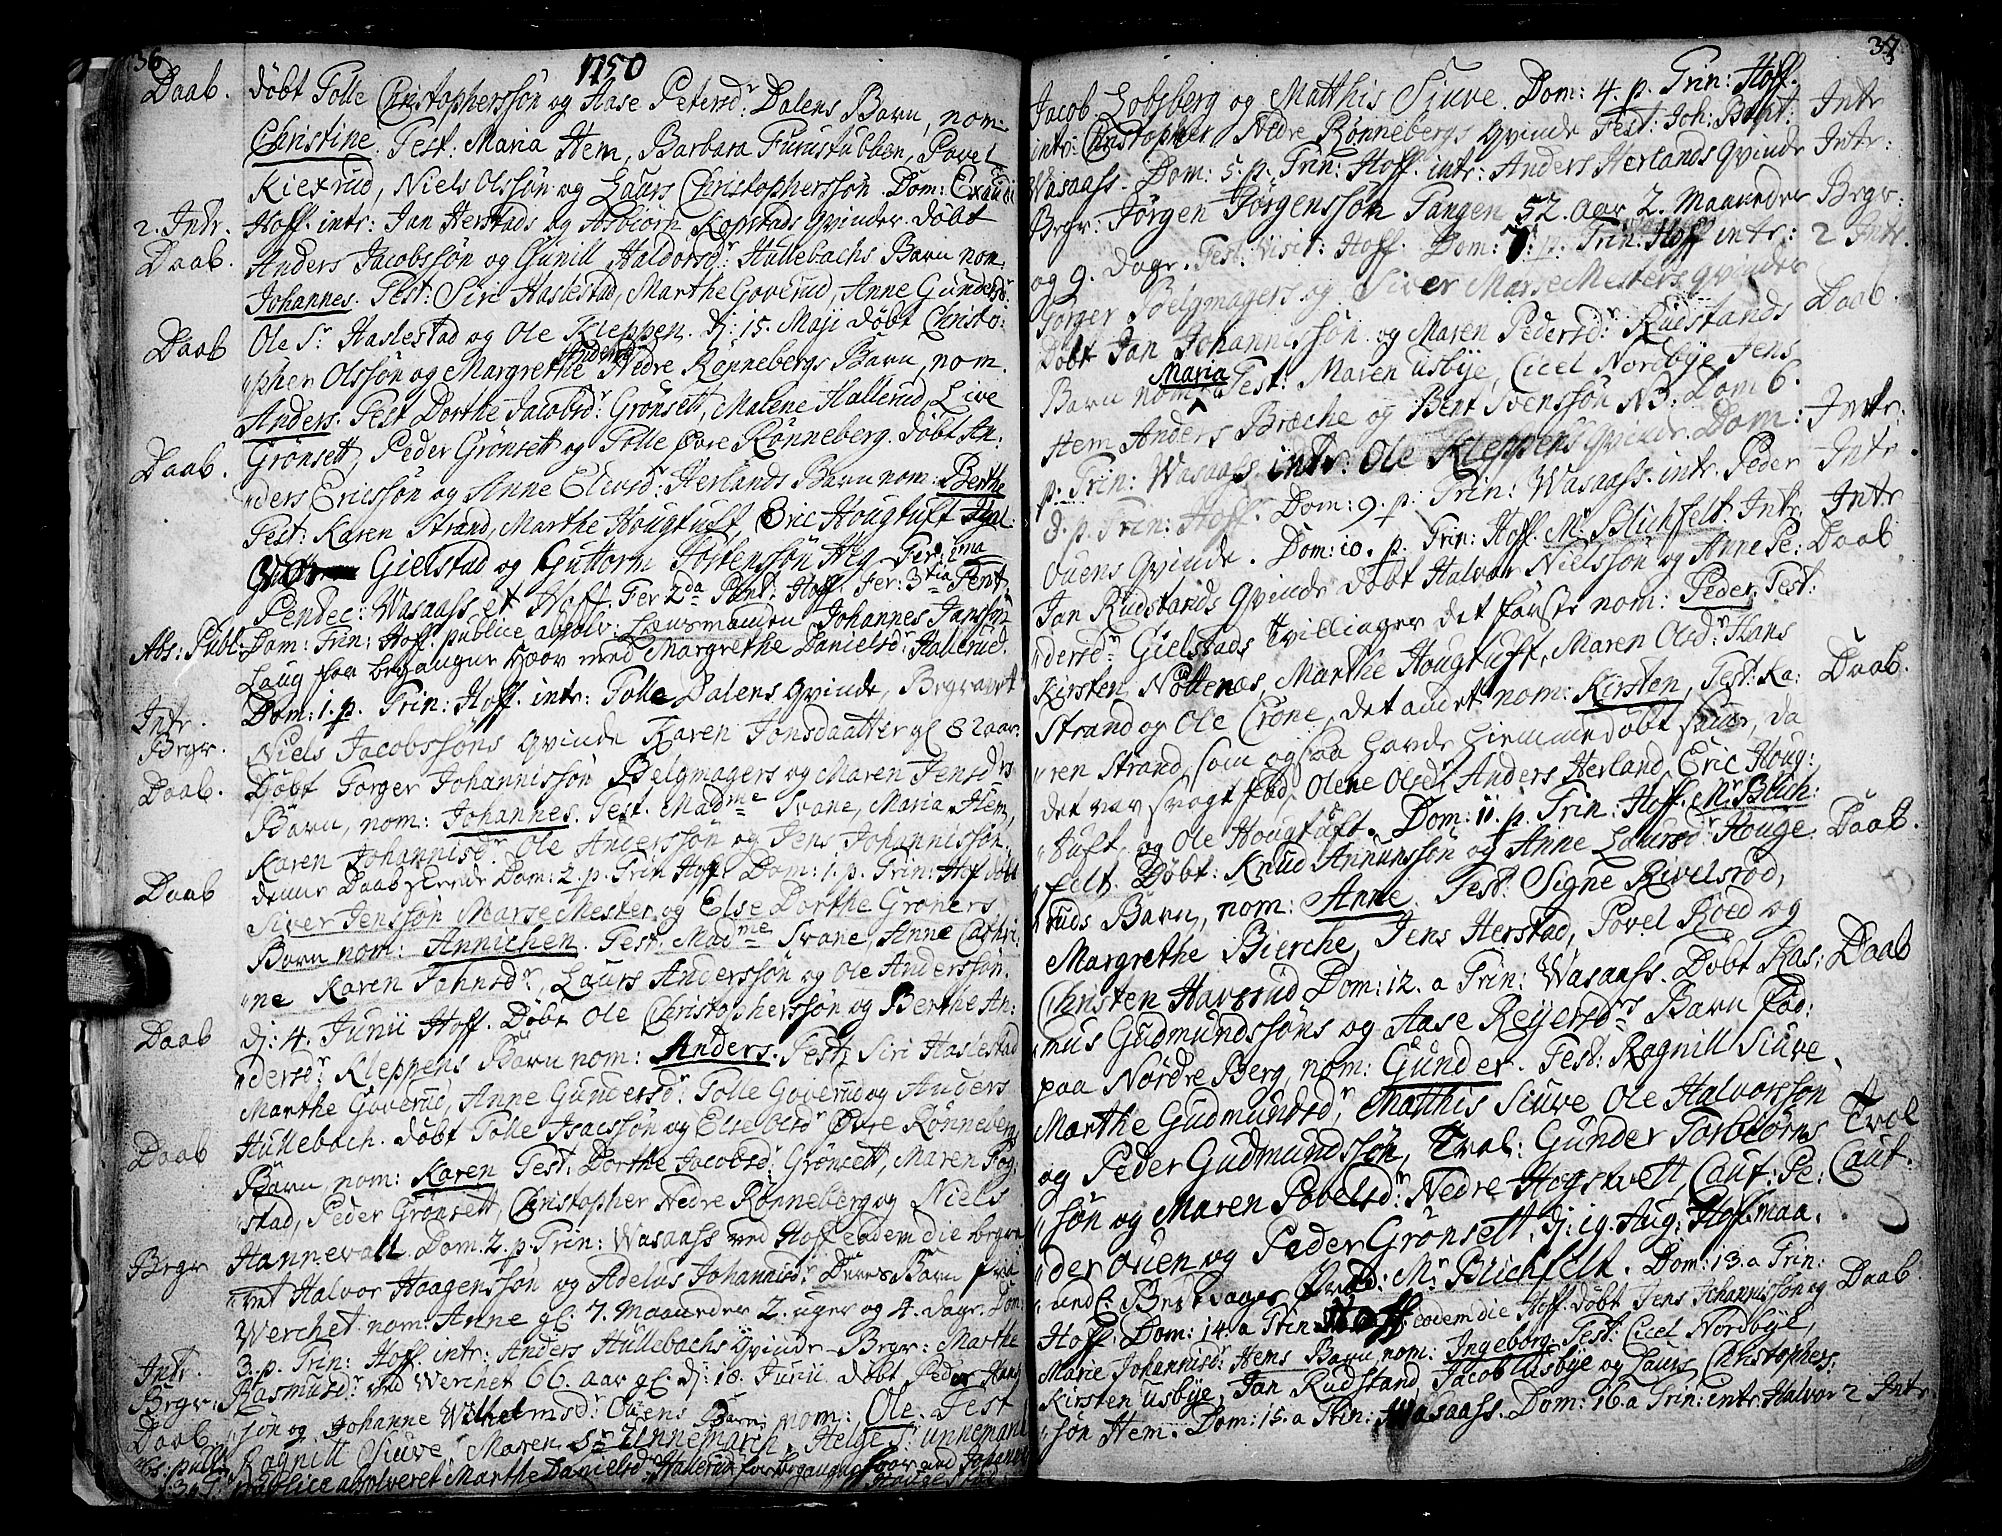 36
1750
Daab. döbt Tolle Christophersön og Aase Petersdr: Dalens Barn, nom
Christine. Test: Maria Hem, Barbara Furustubben, Povel
Kiexrud, Niels Olssön og Laurs Christopherssön. Dom: Exaudi
2. Intr. Hoff. intr: Jan Herstads og Kopstads qvinder. döbt
Daab. Anders Jacobssön og Gunill Haldorsdr: Hullebachs Barn nom:
Johannes. Test: Siri Haslestad, Marthe Goverud, Anne Gundersdr
Daab Ole Sr Haslestad og Ole Kleppen. dj: 15. Maji döbt Christo:
"pher Olssön og Margrethe Nedre Rönnebergs Barn, nom.
Anders. Test Dorthe Jacobsdr: Grönsett, Malene Hallerud, Live
Grönsett, Peder Grönsett og Tolle Övre Rönneberg. döbt An:
Daab. "ders Ericssön og Anne Elivsdr: Herlands Barn nom: Berthe
Test: Karen Strand, Marthe Hougtuft, Eric Hougtuft
Gielstad og Guttorm Tostenssön Heg Fer: 1ma
Pendec: Wasaass et Hoff. Fer 2da Pent: Hoff. Fer: 3tia Pent:
Abs: Publ: Dom: Trin: Hoff. publice absolv: Johannes
Laug for begangen Hoor med Margrethe Danielsdr: Hallerud.
Intr. Dom: 1. p. Trin: Hoff. intr: Tolle Dalens qvinde, Begravet
Brgr. Niels Jacobssöns qvinde Karen Jonsdaatter gl 82 aar.
Daab. Döbt Torger Johannissön Belgmagers og Maren Jensdrs
Barn, nom: Johannes. Test. Madme Svane, Maria Hem,
Karen Johannisdr. Ole Anderssön og Jens Johannissön.
denne Daab skeede Dom: 2. p. Trin Hoff. Dom: 1. p. Trin: Hof döbt
Daab Siver Jenssön Marse Mester og Else Dorthe Groners
Barn nom: Annichen. Test. Madme Svane, Anne Cathri:
"ne Karen Tahnsdr, Laurs Anderssön og Ole Anderssön.
Daab dj: 4. Junii Hoff. Döbt Ole Christopherssön og Berthe An:
"dersdr: Kleppens Barn nom: Anders. Test: Siri Haslestad
Marthe Goverud, Anne Gundersdr. Tolle Goverud og Anders
Hullebach. döbt Tolle Isacssön og Else Olsdr Övre Rönnebergs
Daab Barn, nom: Karen Test. Dorthe Jacobsdr. Grönsett, Maren Fog:
"stad, Peder Grönsett, Christopher Nedre Rönneberg og Niels
Hannevall. Dom: 2. p. Trin: Wasaass ved Hoff eodem die begra:
Brgr "vet Halvor Haagenssön og Adelus Johannisdr. Deres Barn fra
Werchet nom: Anne gl. 7. Maaneder 2. uger og 4. dagr. Dom:
Intr. 3. p. Trin: Hoff. intr: Anders Hullebachs qvinde. Brgr: Marthe
Brgr. Rasmusdr: ved Werchet 66. aar gl. dj: 18. Junii döbt Peder Hans
Daab "sön og Johanne Wilhelmsdr: Ouens Barn nom: Ole. Test
Abs: publ: Ragnill Siuve, Maren Sr Unnemarch, Helge Sr: Unnemarch
publice absolveret Marthe Danielsdr Hallerud for begangen hoor med Johannes
37
Jacob Lobsberg og Matthis Siuve. Dom: 4. p. Trin: Hoff.
intr: Christopher Nedre Rönnebergs Qvinde Fest: Joh: Bapt: Intr
Wasaass. Dom: 5. p. Trin: Hoff. intr: Anders Herlands Qvinde Intr:
Brgr: Jörgen Jörgenssön Tangen 52. aar 2. Maaneder Brgr:
og 9. dagr. Fest. Visit: Hoff. Dom: 7: p. Trin. Hoff intr: 2 Intr.
Torger Belgmagers og Siver Marse Mesters qvinder
Döbt Jan Johannissön og Maren Pedersdr Rudstands Daab.
Barn nom: Maria Test: Maren Usbye, Cicel Nordbye, Jens
Hem Anders Bræche og Bent Svenssön NB: Dom 6.
p: Trin: Wasaass intr: Ole Kleppens qvinde. Dom: Intr.
8. p. Trin: Hoff. Dom: 9. p. Trin: Wasaass. intr. Peder Intr
Ouens Qvinde. Dom: 10. p. Trin: Hoff. Mr Blichfelt. Intr. Intr
Jan Rudstands Qvinde döbt Halvor Nielssön og Anne Pe: Daab
"dersdr Gielstads Tvillinger det förste nom: Peder. Test:
Kirsten Nöttenæs, Marthe Hougtuft, Maren Olsdr Hans
Strand og Ole Crone, det andet nom: Kirsten, Test: Ka: Daab.
"ren Strand, som ogsaa hafde hiemmedöbt samme, da
det var svagt föd, Olene Olsdr Anders Herland, Eric Houg:
"tuft og Ole Hougtuft. Dom: 11. p. Trin: Hoff. Mr Blich:
"felt. Döbt: Knud Amunssön og Anne Laursdr Houge. Daab.
ruds Barn, nom: Anne. Test: Signe Rivelsrod,
Margrethe Bierche, Jens Herstad, Povel Roed og
Christen Havsrud Dom: 12. a Trin: Wasaass. Döbt Ras: Daab
"mus Gudmundssöns og Aase Reyersdrs Barn föd:
paa Nordre Berg, nom: Gunder. Test: Ragnill Siuve,
Marthe Gudmunsdr, Matthis Siuve, Ole Halvorssön
og Peder Gudmundssön, Trol: Gunder Torbiörns Trol
"sön og Maren Povelsdr Nedre Hogskvett, Caut: Pe: Caut.
"der Ouen og Peder Grönsett. dj: 19. Aug: Hoff. maa:
"nedl. Bestdages Mr Blichfelt. Dom: 13. a Trin:
Hoff. Dom: 14. a Trin eodem die Hoff. döbt Jens Johannissön og Daab.
Marie Johannisdr Hems Barn nom: Ingeborg. Test: Cicel Nordbye,
Kirsten Usbye, Jan Rudstand, Jacob Usbye og Laurs Christophers:
"sön Hem. Dom: 15. a Trin: Wasaass. Dom: 16. a Trin: intr. Halvor 2 Intr.